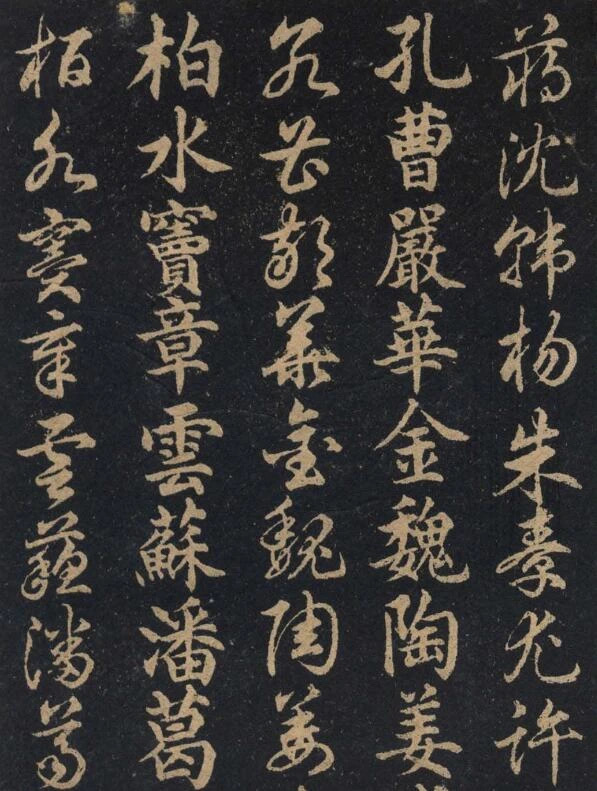 蔣沈韓楊朱秦尤許
孔曹嚴華金魏陶姜
孔曹嚴華金魏陶姜
柏水竇章雲蘇潘葛
柏水竇章雲蘇潘葛